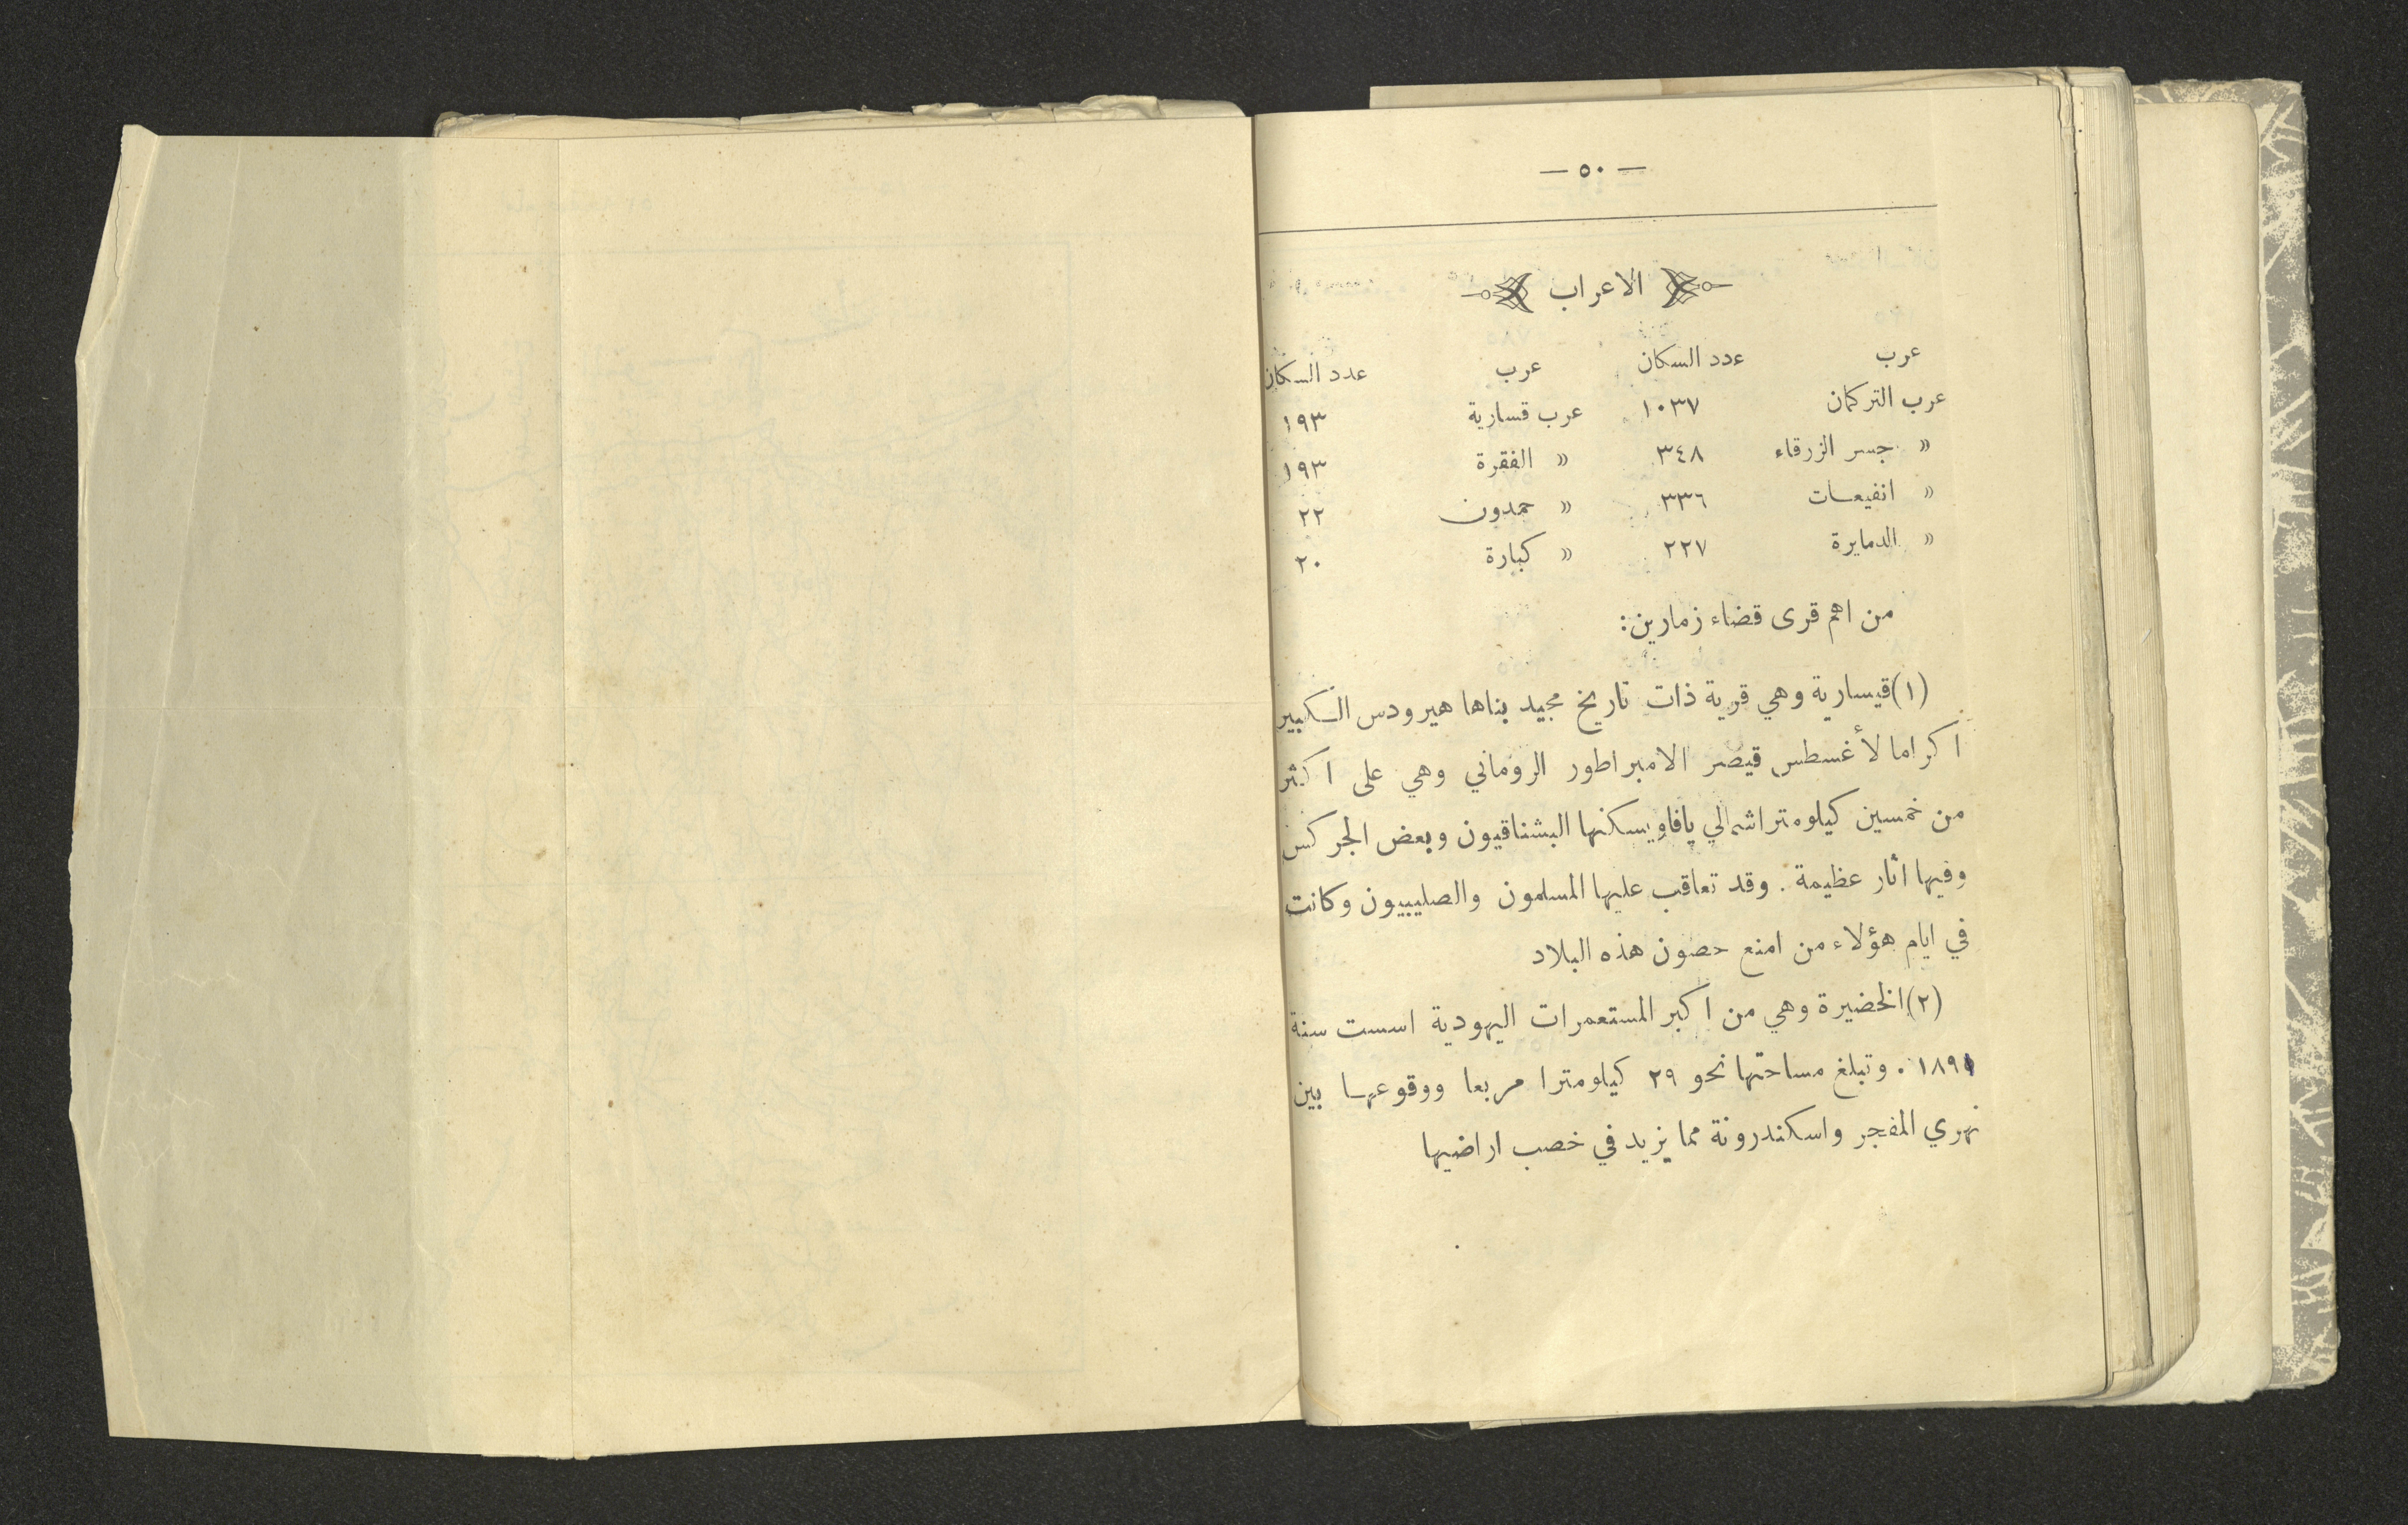 — ٥٠ —
الاعراب
عرب عدد السكان عرب عدد السكان
عرب التركمان ١٠٣٧ عرب قسارية ١٩٣
« جسر الزرقاء ٣٤٨ « الفقرة ١٩٣
« انفيعات ٣٣٦ « حمدون ٢٢
« الدمايرة ٢٢٧ « كبارة ٢٠
من اهم قرى قضاء زمارين:
(١) قيسارية وهي قرية ذات تاريخ مجيد بناها هيرودس الكبير
اكراما لأغسطس قيصر الامبراطور الروماني وهي على اكثر
من خمسين كيلومترا شمالي يافا ويسكنها البشناقيون وبعض الجركس
وفيها اثار عظيمة . وقد تعاقب عليها المسلمون والصليبيون وكانت
في ايام هؤلاء من امنع حصون هذه البلاد
(٢) الخضيرة وهي من اكبر المستعمرات اليهودية اسست سنة
١٨٩١ . وتبلغ مساحتها نحو ٢٩ كيلومترا مربعا ووقوعها بين
نهري المفجر واسكندرونة مما يزيد في خصب اراضيها